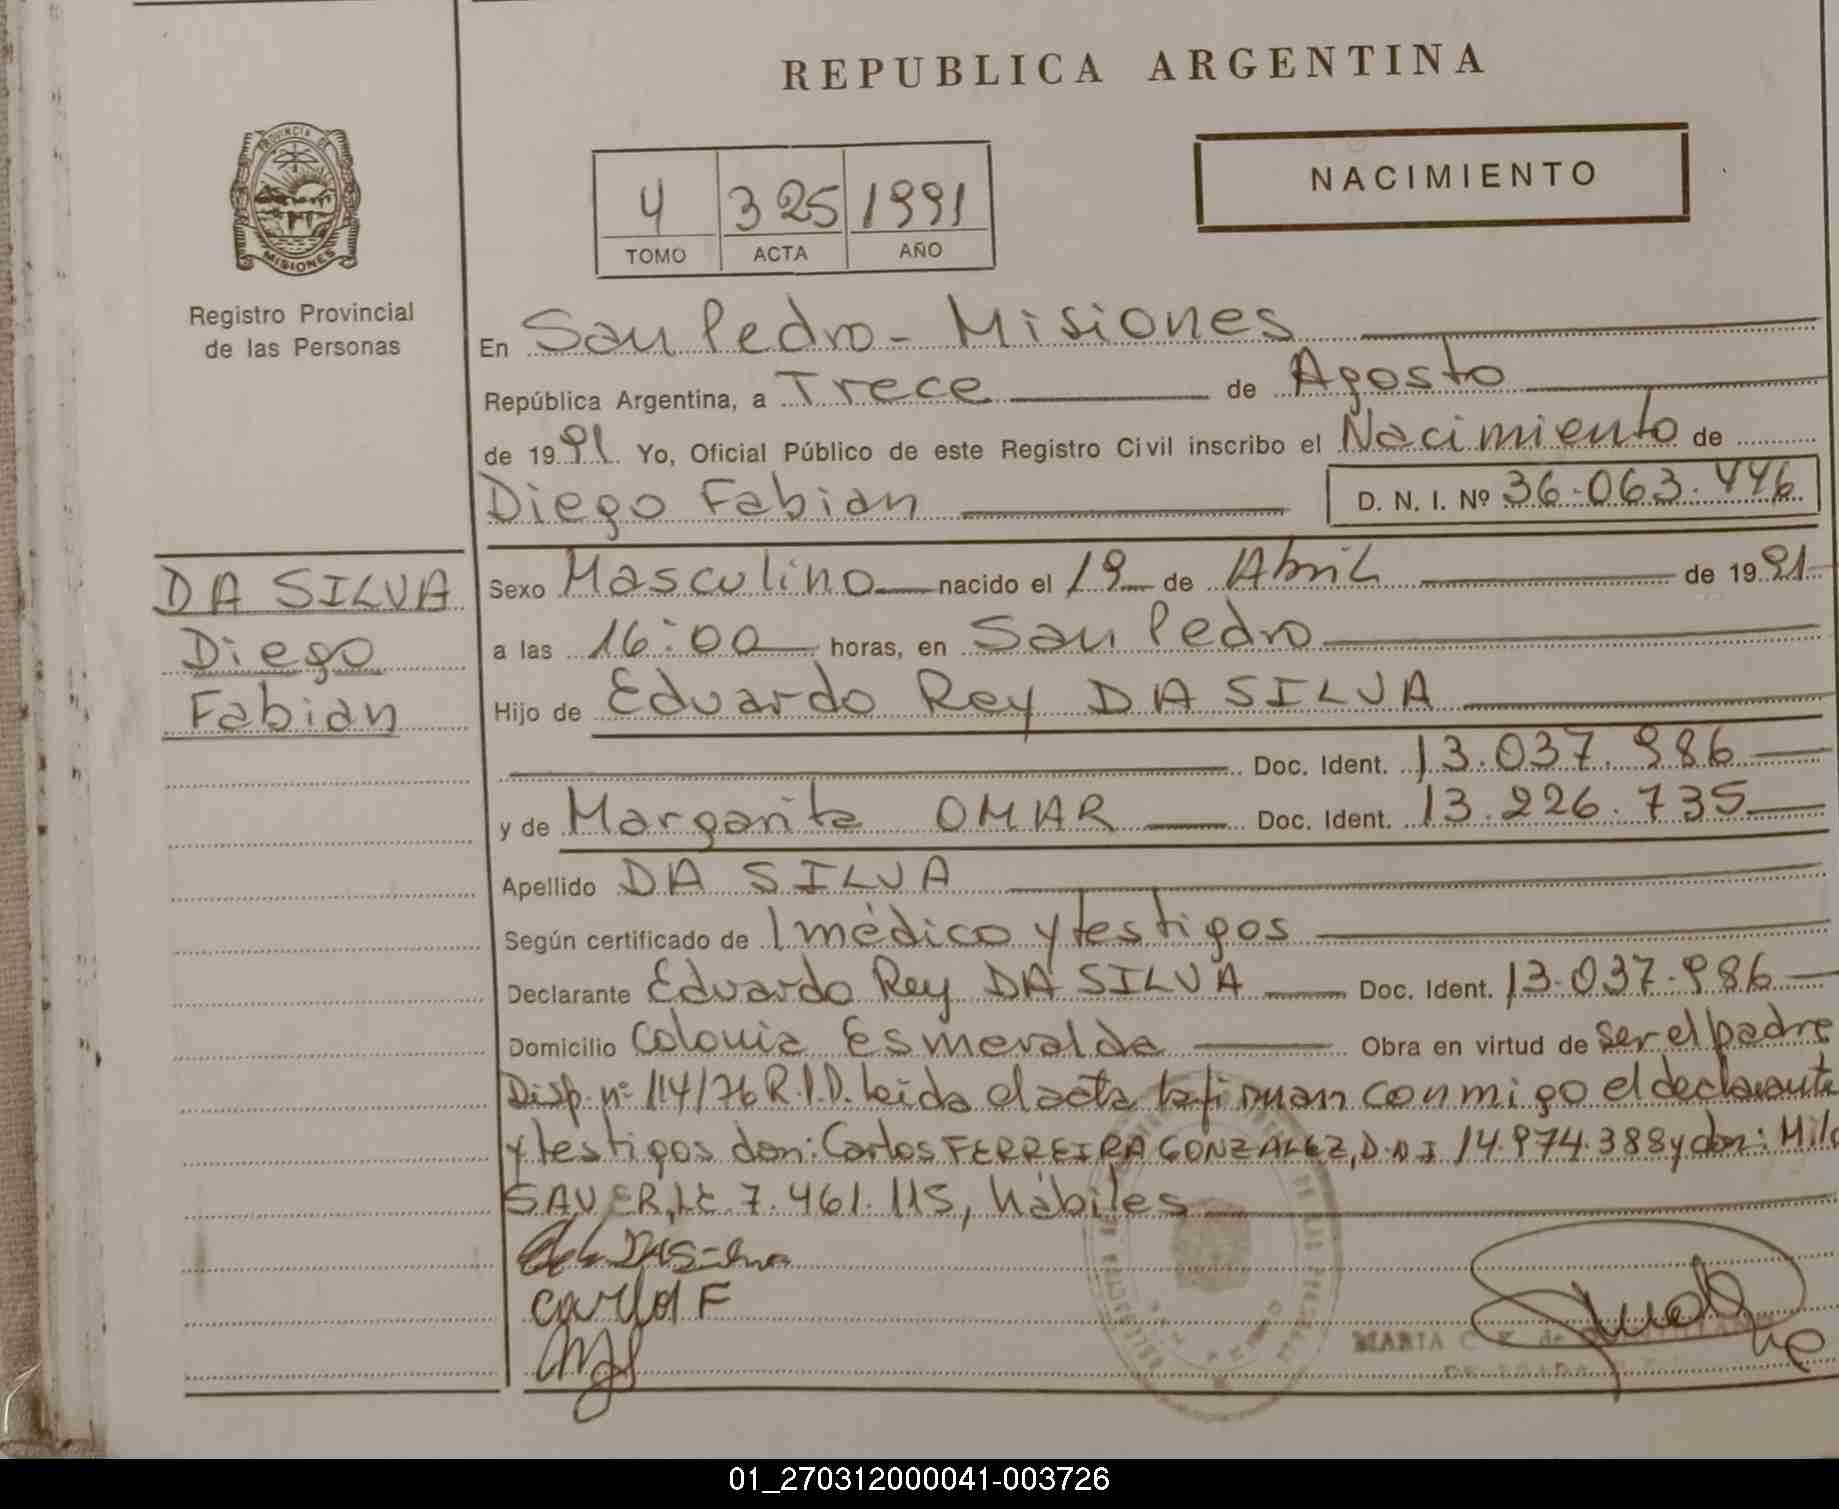 REPUBLICA ARGENTINA
PROVINCIA DE
MISIONES
Registro Provincial
de las Personas
4 325 1991
TOMO ACTA AÑO
NACIMIENTO
En San Pedro - Misiones
República Argentina, a Trece de Agosto
de 1991 Yo, Oficial Público de este Registro Civil inscribo el Nacimiento de
Diego Fabian D. N. I. Nº 36.063.446
DA SILVA
Diego
Fabian
Sexo Masculino nacido el 19 de Abril de 1991
a las 16:00 horas, en San Pedro
Hijo de Eduardo Rey DA SILVA
Doc. Ident. 13.037.986
y de Margarita OMAR Doc. Ident. 13.226.735
Apellido DA SILVA
Según certificado de 1 médico y testigos
Declarante Eduardo Rey DA SILVA Doc. Ident. 13.037.986
Domicilio Colonia Esmeralda Obra en virtud de ser el padre
Disp. nº 114/76 R.P.D. Leida el acta la firman conmigo el declarante
y testigos don: Carlos FERREIRA GONZALEZ, D.N.I 14.974.388 y don:
SAUER, LE 7.461.115, hábiles
Carlos F
MARIA C
01_270312000041-003726